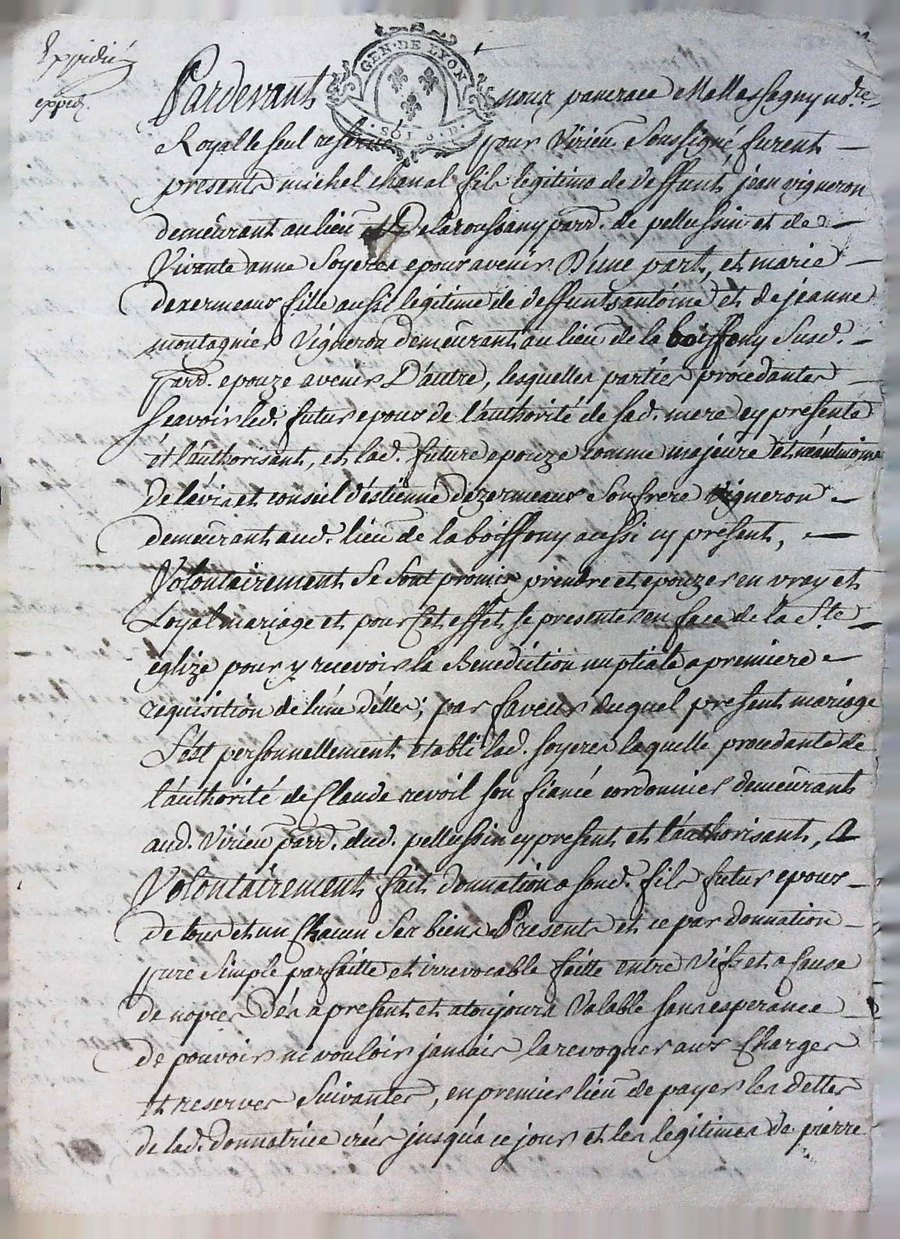 Expedié
exped.
GEN. DE LYON
SOL 8 D.
Pardevant nous pancrace Mellassagny no.re
Royal le seul reservé pour Virieu Soussigné furent
presents michel chanal fils legitime de deffunt jean vigneron
demeurant au lieu De la roussany parr. de pellussin et de
Vivante anne Soyeres epoux avenir D'une part, et marie
dezermeaux fille aussi legitime de deffunts antoine et de jeanne
montagnier Vigneron demeurant au lieu de la boiffony susd.
parr. epouze avenir D'autre, lesquelles parties procedantes
Scavoir led. futur epoux de l'authorité de sad. mere cy presente
et l'authorisant, et lad. future epouze comme majeure et néantmoins
De l'avis et conseil d'estienne dezermeaux Son frere vigneron
demeurant aud. lieu de la boiffony aussi cy present,
Volontairement Se sont promis prendre et epouzer en vray et
Loyal mariage et pour Cet effet se presenter en face de la Ste
eglize pour y recevoir la Benediction nuptiale a premiere
requisition de l'une d'elles; par faveur duquel present mariage
S'est personnellement etabli lad. Soyeres laquelle procedante de
l'authorité de Claude revoil son fiancé cordonnier demeurant
aud. Virieu parr. dud. pellussin cy present et l'authorisant, A
Volontairement fait donnation a sond. fils futur epoux
de tous et un Chacun Ses biens Presents et ce par donnation
pure Simple parfaitte et irrevocable faitte entre Vifs et a Cause
de nopces Dés a present et a toujours Valable sans esperance
de pouvoir ni vouloir jamais la revoquer aux Charges
et reserves Suivantes, en premier lieu de payer les dettes
de lad. donnatrice crées jusqu'a ce jour et les legitimes de pierre